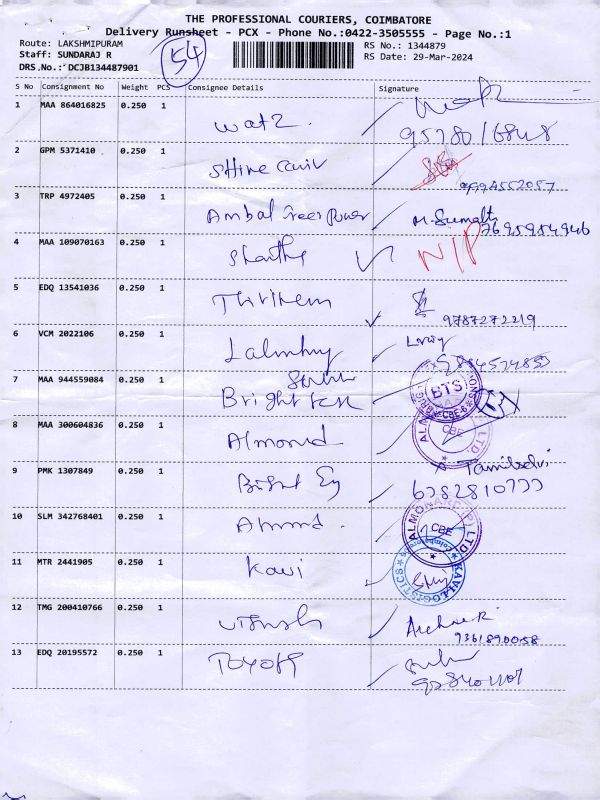 THE PROFESSIONAL COURIERS, COIMBATORE
Delivery Runsheet - PCX - Phone No.:0422-3505555 - Page No.:1
Route: LAKSHMIPURAM RS No.: 1344879
Staff: SUNDARAJ R 54 RS Date: 29-Mar-2024
DRS.No.: DCJB134487901
S No Consignment No Weight PCS Consignee Details Signature
1 MAA 864016825 0.250 1
2 GPM 5371410 0.250 1 Shine
9994552057
3 TRP 4972405 0.250 1 Ambal M. Sumathi
7695954946
4 MAA 109070163 0.250 1 N/P
5 EDQ 13541036 0.250 1
9787272219
6 VCM 2022106 0.250 1
7 MAA 944559084 0.250 1 Bright BTS CBE-6
8 MAA 300604836 0.250 1 Almonrd CBE LTD.
9 PMK 1307849 0.250 1 Tamilselvi
6382810777
10 SLM 342768401 0.250 1 ALMONARD (P) LTD. CBE
11 MTR 2441905 0.250 1 Kavi KAVI LOGISTICS
12 TMG 200410766 0.250 1
9361890058
13 EDQ 20195572 0.250 1 Toyota